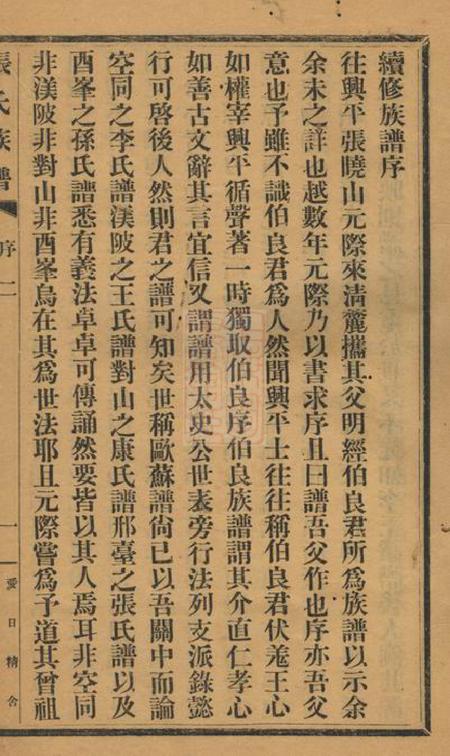 續修族譜序
往興平張曉山元際來清麓攜其父明經伯良君所爲族譜以示余
余未之詳也越數年元際乃以書求序且曰譜吾父作也序亦吾父
意也予雖不識伯良君爲人然聞興平士往往稱伯良君伏羗王心
如權宰興平循聲著一時獨取伯良序伯良族譜謂其介直仁孝心
如善古文辭其言宜信又謂譜用太史公世表旁行法列支派錄懿
行可啓後人然則君之譜可知矣世稱歐蘇譜尙已以吾關中而論
空同之李氏譜渼陂之王氏譜對山之康氏譜邢臺之張氏譜以及
酉峯之孫氏譜悉有義法卓卓可傳誦然要皆以其人焉耳非空同
非渼陂非對山非酉峯烏在其爲世法耶且元際嘗爲予道其曾祖
張氏族譜 序二 一 愛日精舍